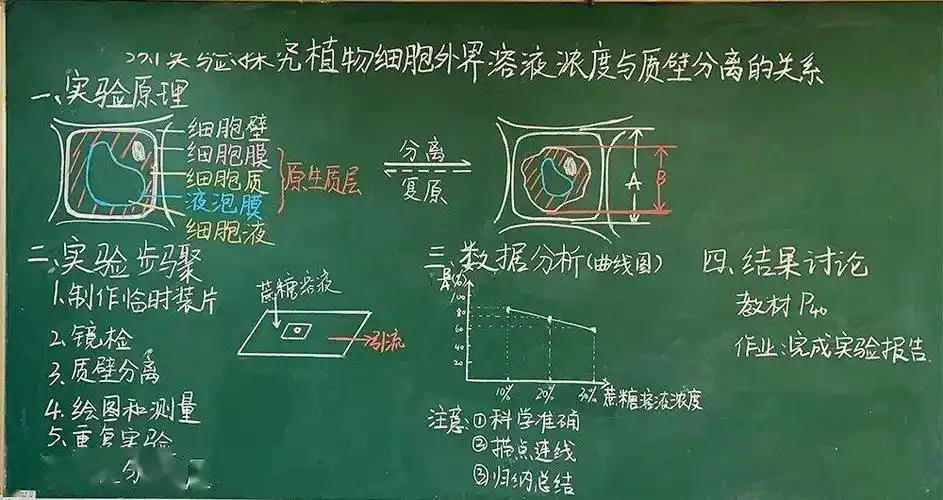 实验探究植物细胞外界溶液浓度与质壁分离的关系
一、实验原理
细胞壁
细胞膜
细胞质
液泡膜
细胞液
原生质层
分离
复原
A
B
二、实验步骤
1.制作临时装片
2.镜检
3.质壁分离
4.绘图和测量
5.重复实验
蔗糖溶液
引流
三、数据分析(曲线图)
100
80
60
40
20
10%
20%
30%
蔗糖溶液浓度
注意:①科学准确
②描点连线
③归纳总结
四、结果讨论
教材P40
作业:完成实验报告